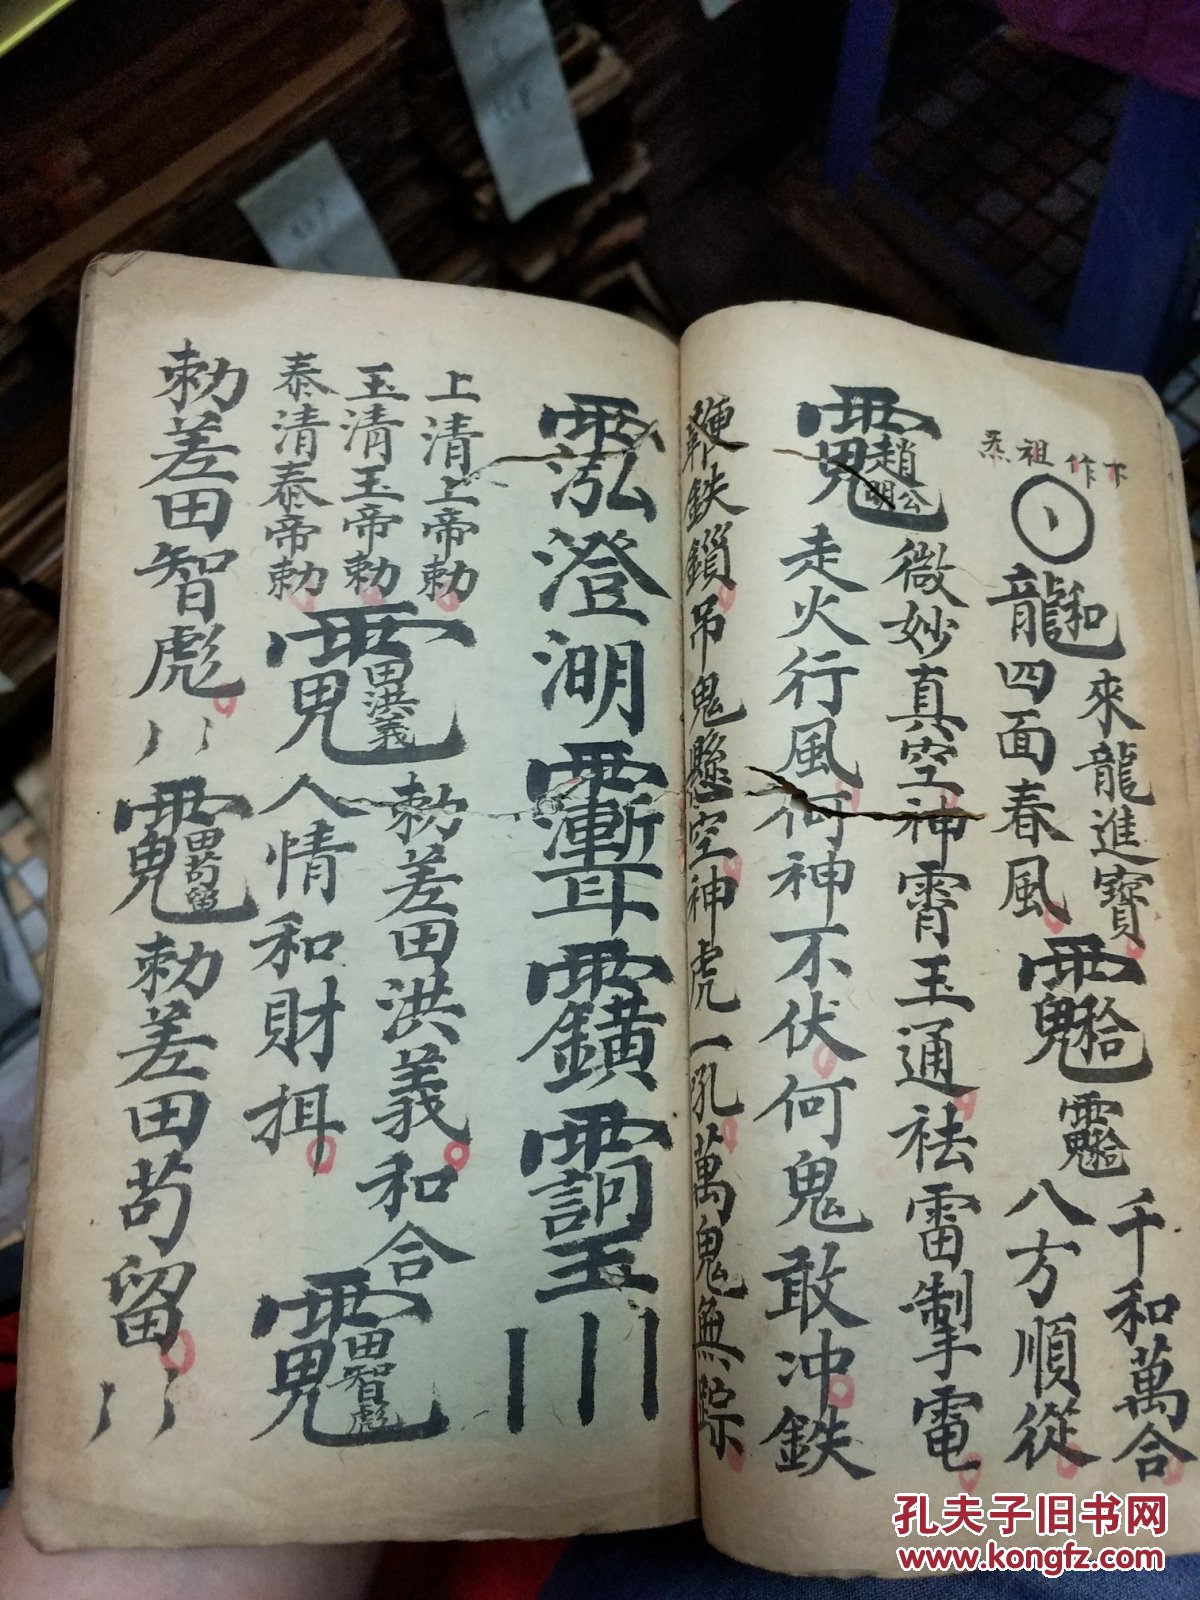 下作祖炁
和來龍進寶
千和萬合
龍四面春風
八方順從
微妙真空神霄玉通祛雷掣電
趙公明
走火行風何神不伏何鬼敢冲鉄
鞭鉄鎖吊鬼懸空神虎一吼萬鬼無踪
泓澄湖
上清上帝勅
玉清玉帝勅
泰清泰帝勅
勅差田洪義和合
田洪義
人情和財
田智彪
勅差田智彪
田苟留
勅差田苟留
孔夫子旧书网
www.kongfz.com